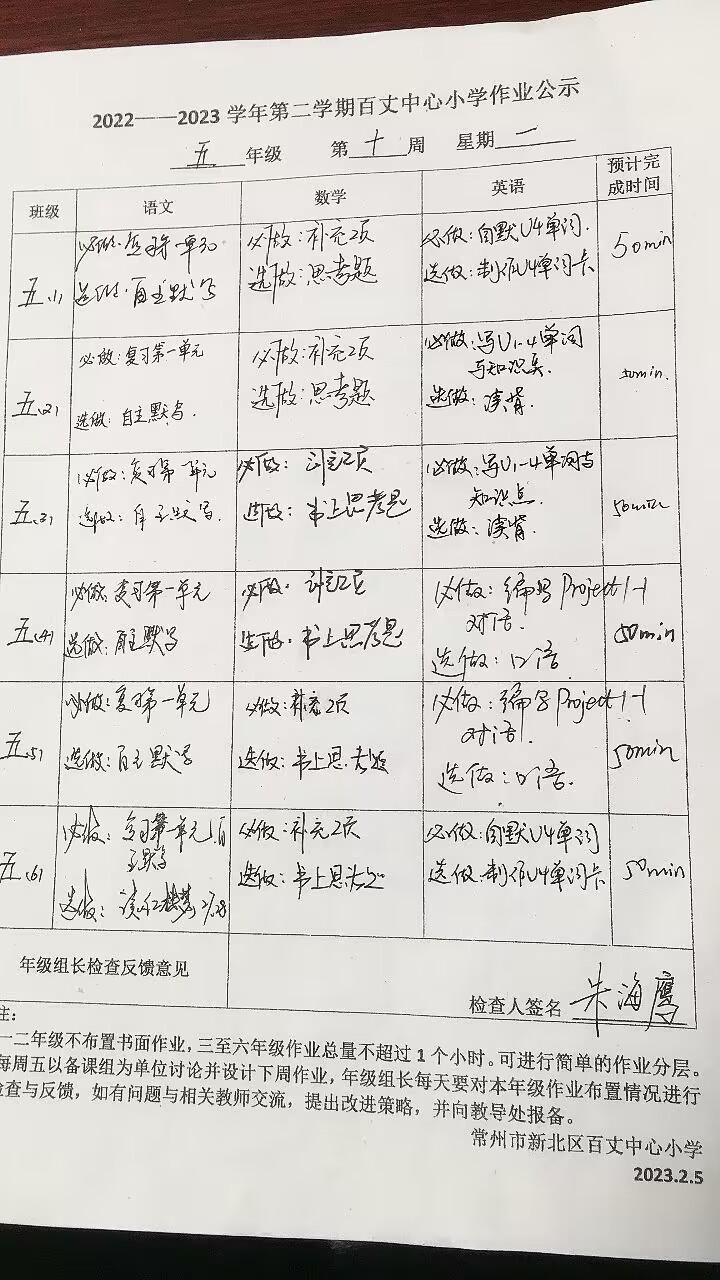 2022——2023 学年第二学期百丈中心小学作业公示
五 年级 第 十 周 星期 一
班级 语文 数学 英语 预计完成时间
五.(1)
必做:复习第一单元
选做:自主默写
必做:补充2页
选做:思考题
必做:自默U4单词.
选做:制作U4单词卡
50min
五.(2)
必做:复习第一单元
选做:自主默写.
必做:补充2页
选做:思考题
必做:写U1-4单词
与知识点.
选做:读背.
50min.
五.(3)
必做:复习第一单元
选做:自主默写.
必做:补充2页
选做:书上思考题
必做:写U1-4单词与
知识点.
选做:读背.
50min
五.(4)
必做:复习第一单元
选做:自主默写
必做:补充2页
选做:书上思考题
必做:编写Project 1-1
对话.
选做:口语.
50min
五.(5)
必做:复习第一单元
选做:自主默写
必做:补充2页
选做:书上思考题
必做:编写Project 1-1
对话.
选做:口语.
50min
五.(6)
必做:复习第一单元,自
主默写
选做:读红楼梦27.28
必做:补充2页
选做:书上思考题
必做:自默U4单词
选做:制作U4单词卡
50min
年级组长检查反馈意见
检查人签名 朱海鹰
注:
一二年级不布置书面作业,三至六年级作业总量不超过 1 个小时。可进行简单的作业分层。
每周五以备课组为单位讨论并设计下周作业,年级组长每天要对本年级作业布置情况进行
检查与反馈,如有问题与相关教师交流,提出改进策略,并向教导处报备。
常州市新北区百丈中心小学
2023.2.5